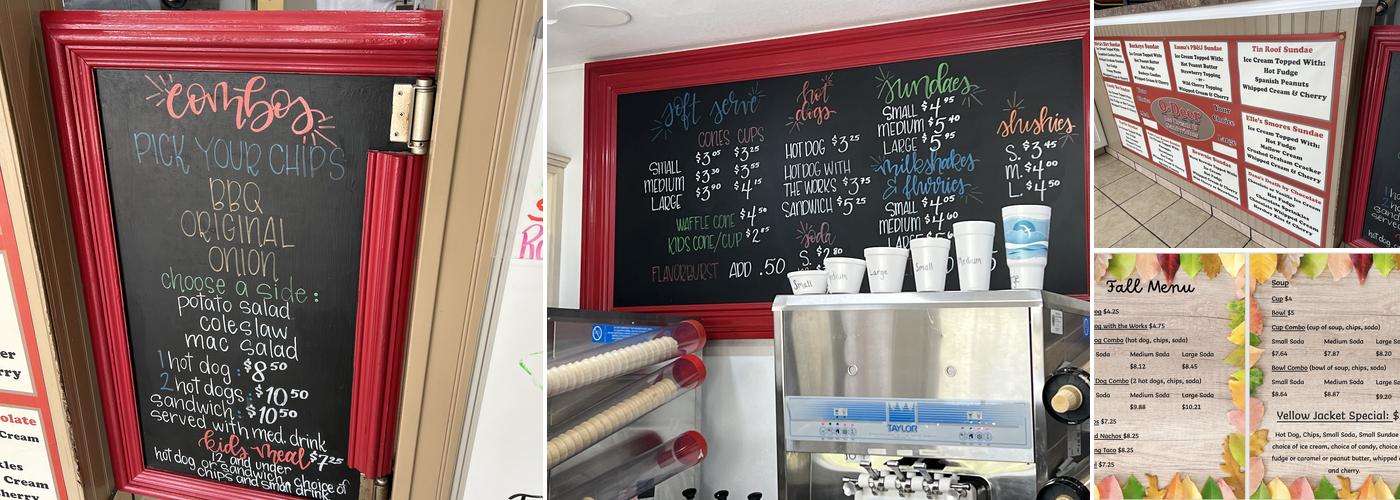 combos
PICK YOUR CHIPS
BBQ
ORIGINAL
ONION
choose a side:
potato salad
coleslaw
mac salad
1 hot dog: $8.50
2 hot dogs: $10.50
sandwich: $10.50
served with med. drink
kids meal $7.25
12 and under
hot dog or sandwich, choice of
chips and small drink
soft serve
CONES CUPS
SMALL $3.05 $3.25
MEDIUM $3.30 $3.55
LARGE $3.90 $4.15
WAFFLE CONE $4.50
KIDS CONE/CUP $2.85
FLAVORBURST ADD .50
hot
dogs
HOT DOG $3.25
HOT DOG WITH
THE WORKS $3.75
SANDWICH $5.25
soda
S.
sundaes
SMALL $4.95
MEDIUM $5.40
LARGE $5.95
milkshakes
& flurries
SMALL $4.05
MEDIUM $4.60
slushies
S. $3.45
M. $4.00
L. $4.50
Small
Large
Small
Medium
TAYLOR
Buckeye Sundae
Ice Cream Topped With:
Hot Fudge
Hot Peanut Butter
Buckeye Candies
Whipped Cream & Cherry
Emma's PB&J Sundae
Ice Cream Topped With:
Hot Peanut Butter
Strawberry Topping
- or -
Wild Cherry Topping
Whipped Cream & Cherry
Tin Roof Sundae
Ice Cream Topped With:
Hot Fudge
Spanish Peanuts
Whipped Cream & Cherry
Your
Choice
Large
Elle's Smores Sundae
Ice Cream Topped With:
Hot Fudge
Mallow Cream
Crushed Graham Cracker
Whipped Cream & Cherry
Brownie Sundae
Dana's Death by Chocolate
Chocolate or Vanilla Ice Cream
Hot Fudge
Chocolate Sprinkles
Chocolate Whipped Cream
Hershey Kiss & Cherry
Fall Menu
$4.25
with the Works $4.75
Combo (hot dog, chips, soda)
Soda Medium Soda Large Soda
$8.12 $8.45
Dog Combo (2 hot dogs, chips, soda)
Soda Medium Soda Large Soda
$9.88 $10.21
$7.25
Nachos $8.25
Taco $8.25
$7.25
Soup
Cup $4
Bowl $5
Cup Combo (cup of soup, chips, soda)
Small Soda Medium Soda Large Soda
$7.64 $7.87 $8.20
Bowl Combo (bowl of soup, chips, soda)
Small Soda Medium Soda Large Soda
$8.64 $8.87 $9.20
Yellow Jacket Special: $
Hot Dog, Chips, Small Soda, Small Sundae
choice of ice cream, choice of candy, choice
fudge or caramel or peanut butter, whipped
and cherry.